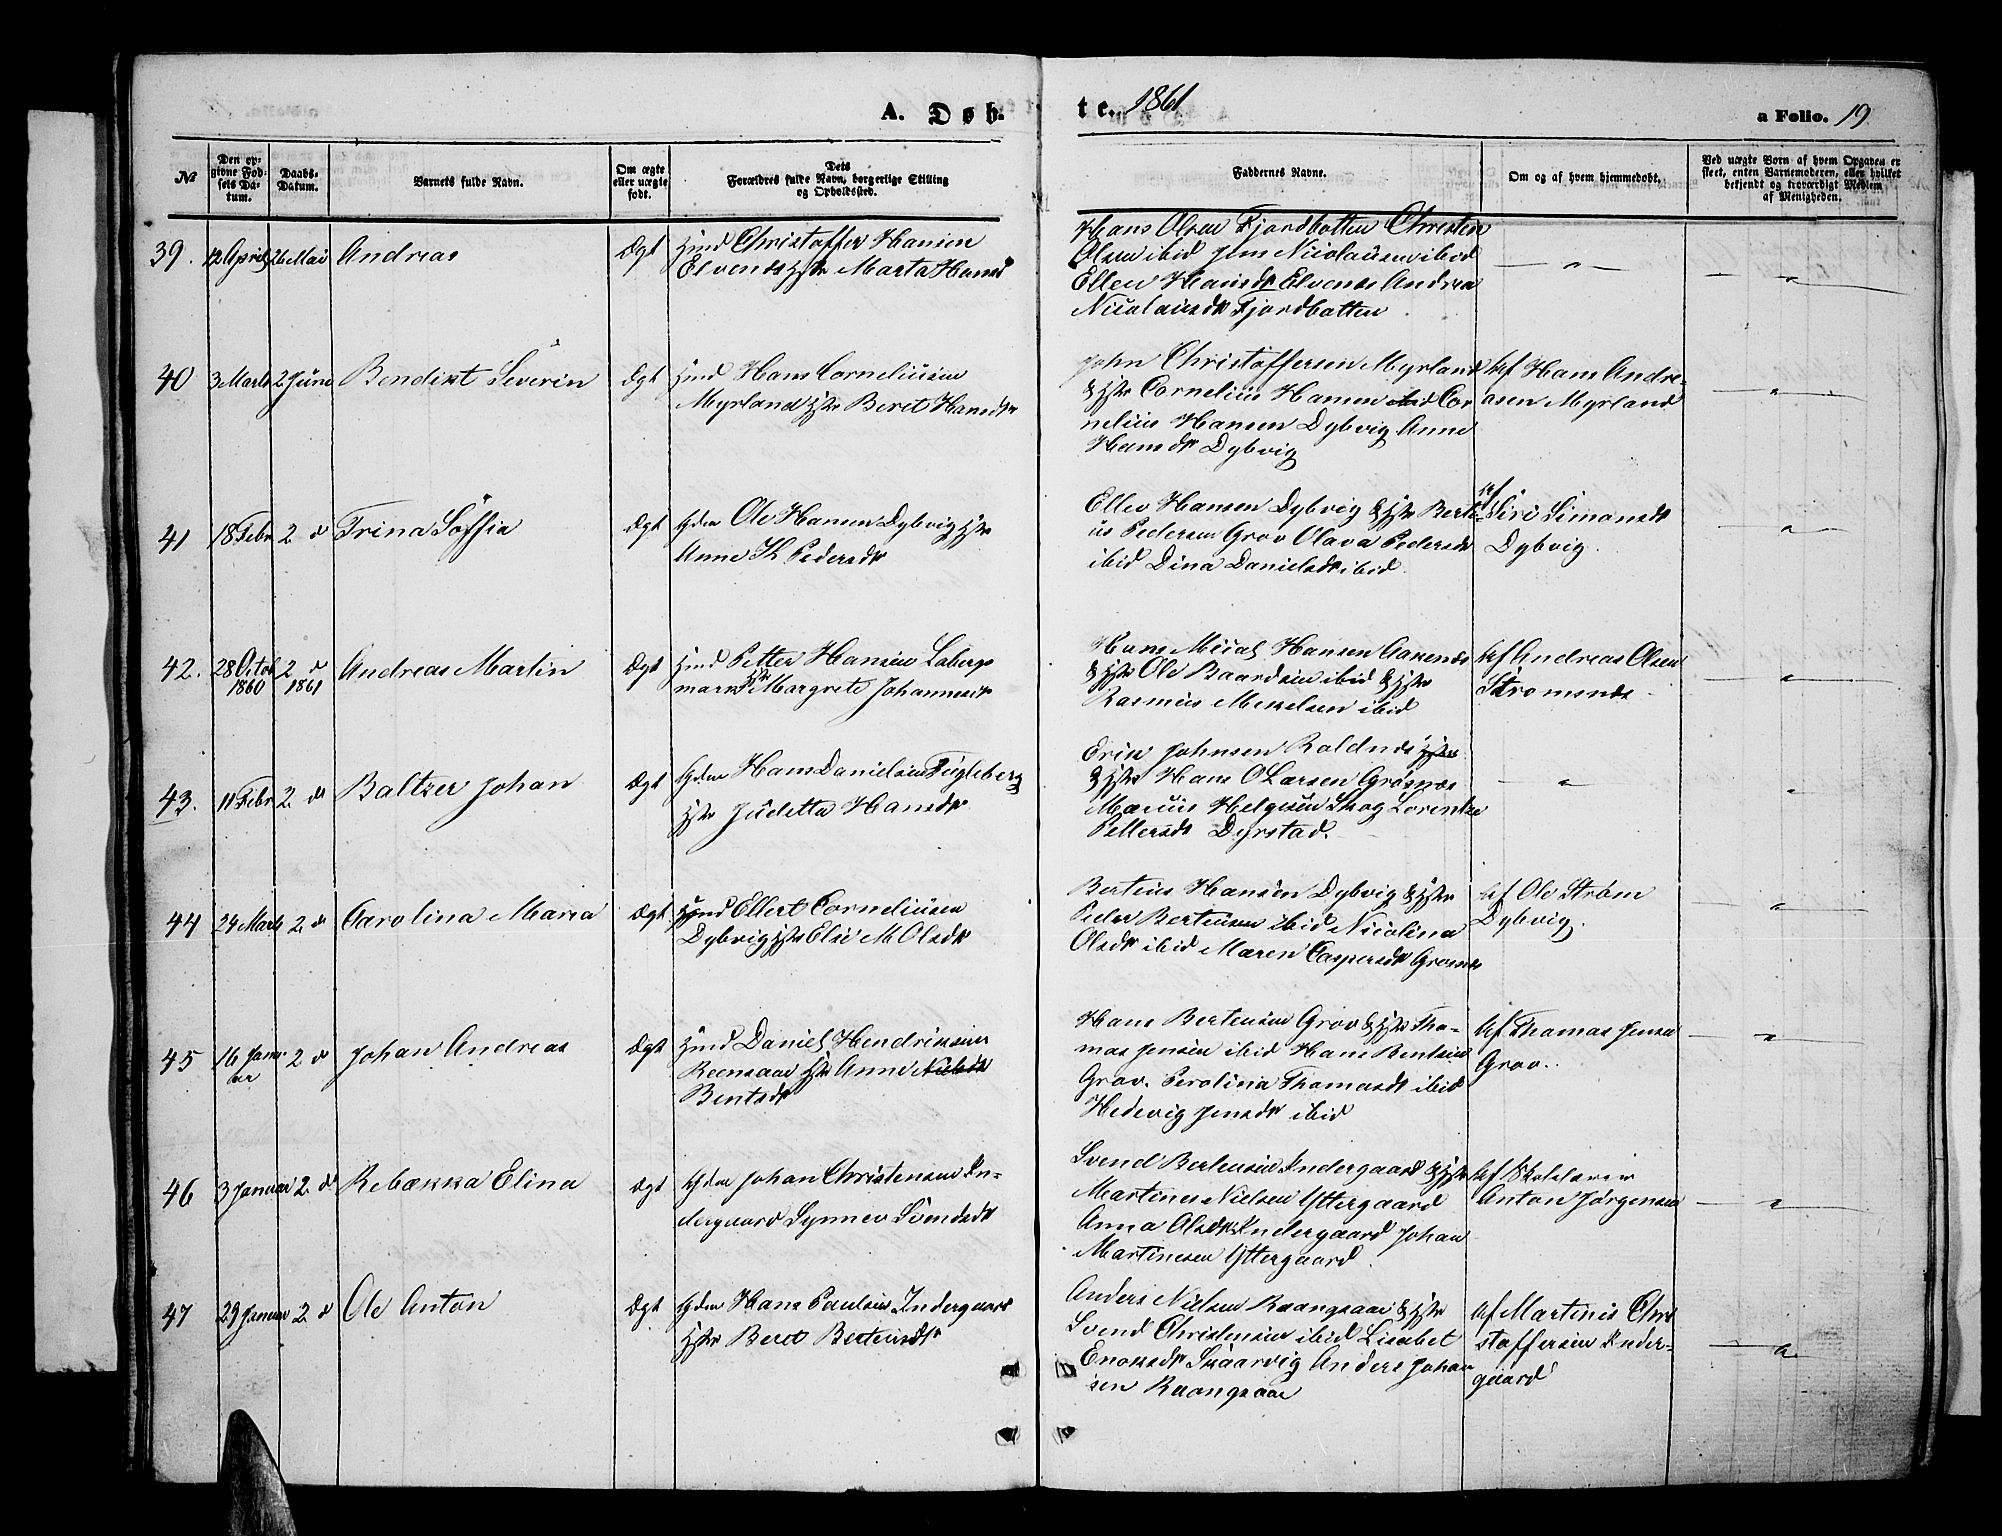 A. Døb-
te. 1861
a Folio. 19
№
Den op-
givne Fød-
sels Da-
tum.
Daabs-
Datum.
Barnets fulde Navn.
Om ægte
eller uægte
født.
Dets
Forældres fulde Navn, borgerlige Stilling
og Opholdssted.
Faddernes Navne.
Om og af hvem hjemmedøbt.
Ved uægte Børn af hvem Opgaven er
skeet, enten Barnemoderen, eller hvilket
bekjendt og troværdigt Medlem
af Menigheden.
39. 12 April 26 Mai Andreas Ægt Hmd Christoffer Hansen
Elvenes Hstr Marta Hansd
Hans Olsen Fjordbotten Christen
Olsen ibid Jens Nicolausen ibid
Ellen Hansdr Elvenes Andrea
Nicolaisdr Fjordbotten
40 3 Marts 2 Juni Bendikt Severin Ægt Hmd Hans Corneliusen
Myrland Hstr Beret Hansdr
John Christoffersen Myrland
& Hstr Cornelius Hansen ibid Cor
nelius Hansen Dybvig Anne
Hansdr Dybvig
Af Hans Andre-
asen Myrland
41 18 Febr 2 d Trina Soffia Ægt Gdm Ole Hansen Dybvig Hstr
Anne K Pedersdr
Ellev Hansen Dybvig & Hstr Berti-
us Pedersen Grov Olava Pedersdr
ibid Dina Danielsdr ibid
Af Siri Simonsdr
Dybvig.
42. 28 Octob
1860 2 d
1861 Andreas Martin Ægt Hmd Petter Hansen Labergs
mark Hstr Margrete Johannesdr
Hans Mical Hansen Aanenes
& Hstr Ole Baardsen ibid & Hstr
Rasmus Mekelsen ibid
Af Andreas Olsen
Strømsnes
43. 11 Febr 2. d Baltzer Johan Ægt Gdm Hans Danielsen Fugleberg
Hstr Judetta Hansdr
Erik Johnsen Roldnes Hstr
& Hstr Hans O Larsen Grøsnes
Marius Helgesen Skog Lorentze
Pettersdr Dyrstad.
44 24 Marts 2. d Carolina Maria Ægt Hmd Ellert Corneliusen
Dybvig Hstr Else M Olsdr
Bertius Hansen Dybvig & Hstr
Peder Berteusen ibid Nicolina
Olsdr ibid Maren Caspersdr Grøsnes
Af Ole Strøm
Dybvig.
45 16 Janu
ar 2 d Johan Andreas Ægt Hmd Daniel Hendriksen
Rensaae Hstr Anne
Bentsdr
Hans Bertensen Grov & Hstr Tho-
mas Jensen ibid Hans Bentsen
Grov. Perolina Thomasdr ibid
Hedevig Jensdr ibid
Af Thomas Jensen
Grov.
46 3 Januar 2. d Rebækka Elina Ægt Gdm Johan Christensen In-
dergaard Synnev Svendsdr
Svend Bertensen Indergaard & Hstr
Martines Nielsen Yttergaard
Anna Olsdr Indergaard Johan
Martinesen Yttergaard
Af Skolelærer
Anton Jørgensen
47 29 Januar 2. d Ole Anton Ægt Gdm Hans Paulsen Indergaard
Hstr Beret Berteusdr
Anders Nielsen Raangsaae & Hstr
Svend Christensen ibid Lisabet
Enoksdr Skaarvig Anders Johan
sen Raangsaae
Af Martinis Chri
stoffersen Inder-
gaard